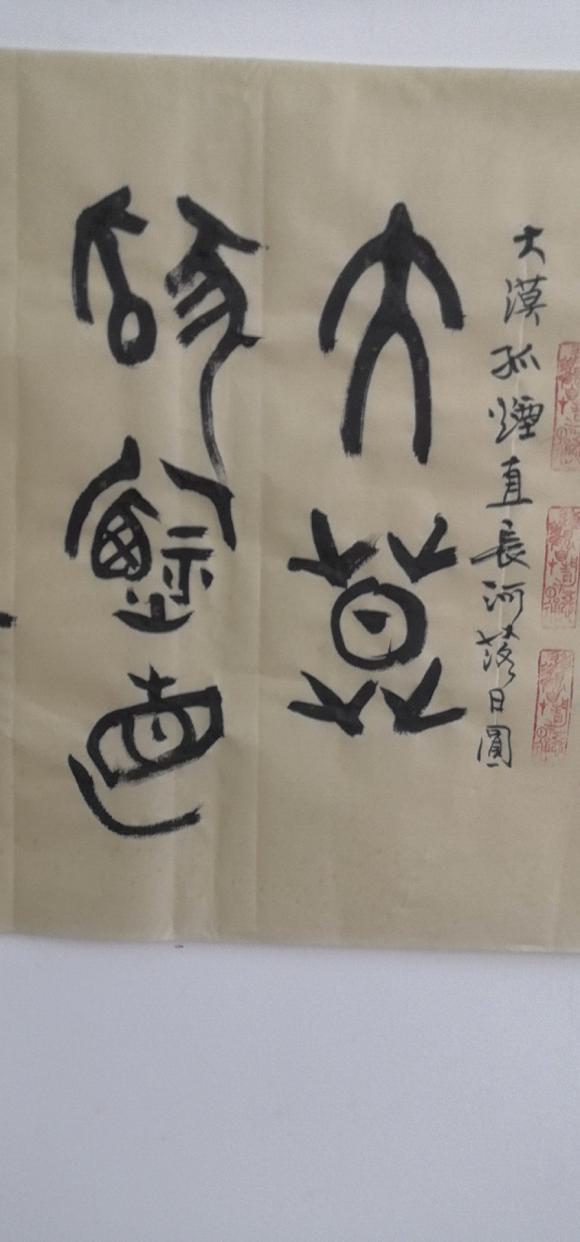 大漠孤煙直長河落日圓
大莫
孤煙直